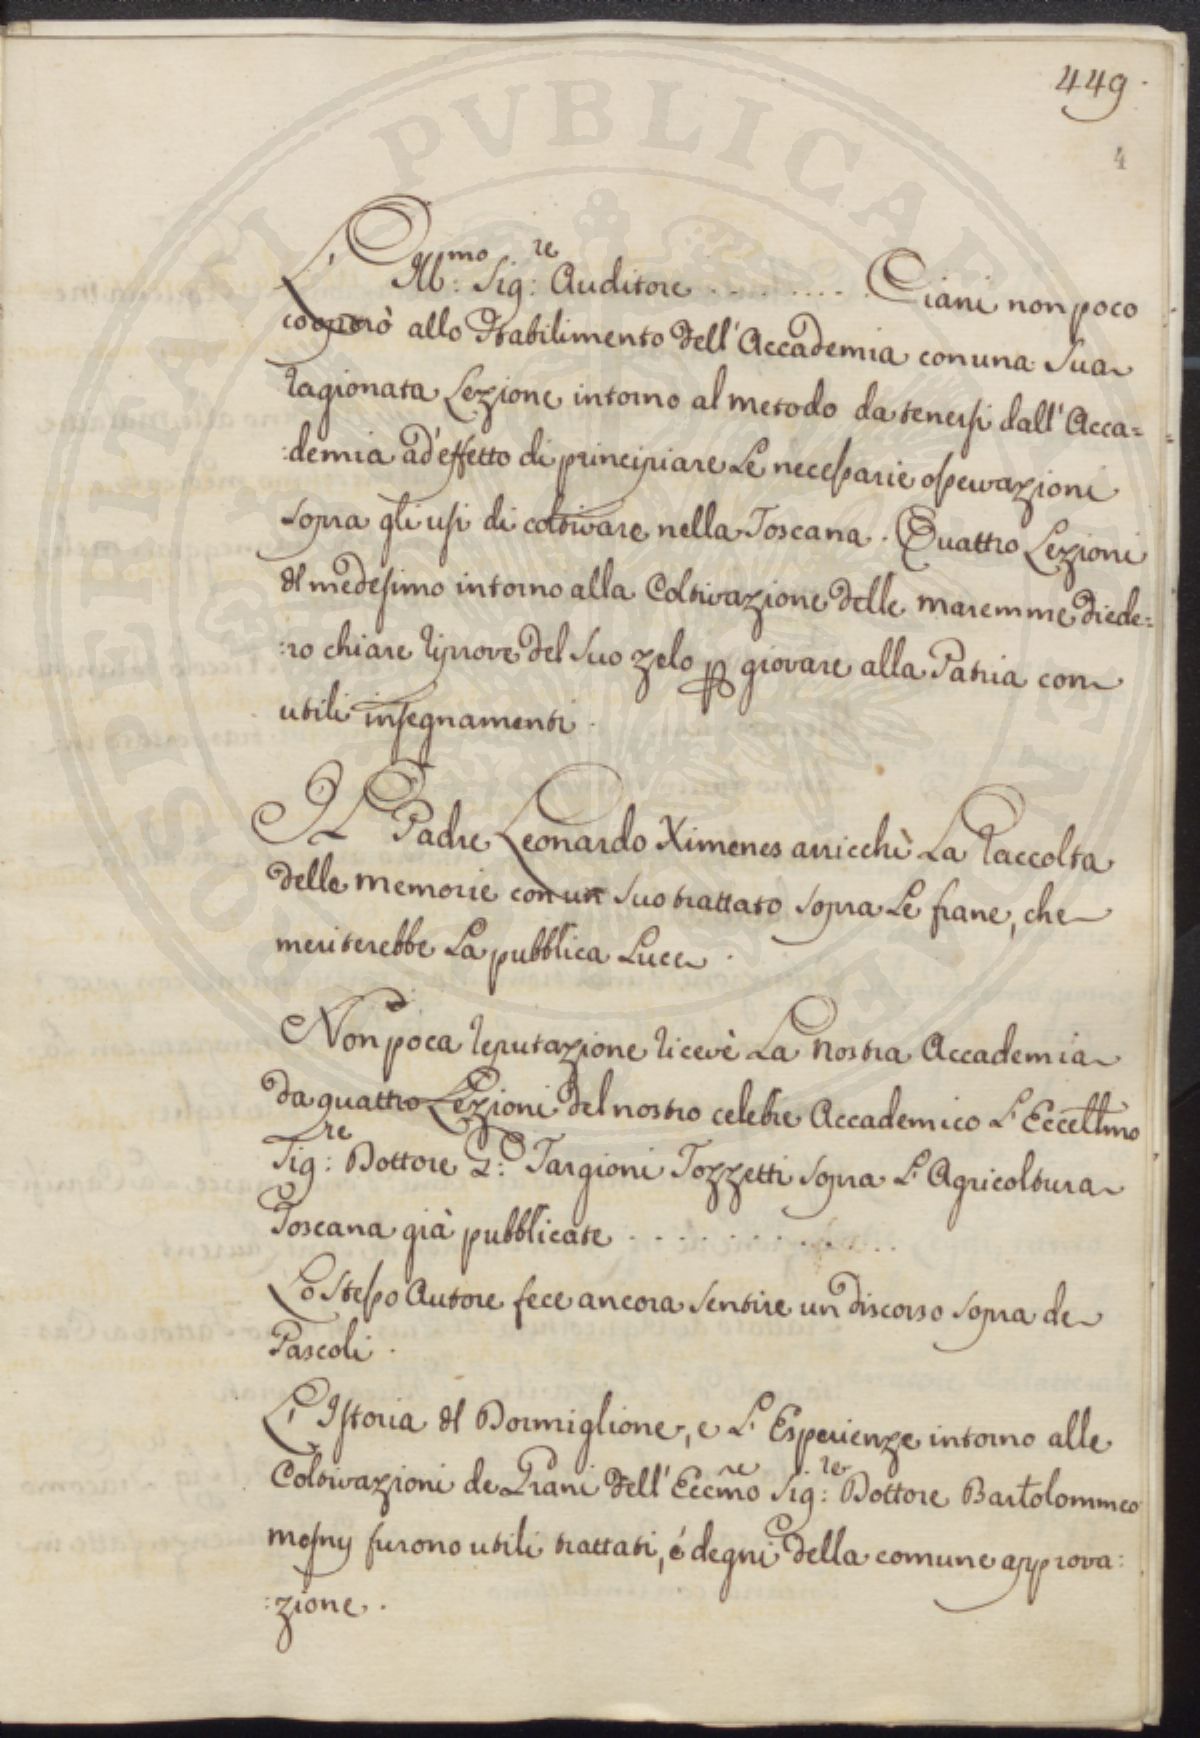 449.
4
L' Ill:mo Sig:re Auditore .......... Ciani non poco
cooperò allo Stabilimento dell'Accademia con una Sua
ragionata Lezione intorno al metodo da tenersi dall'Acca=
:demia ad'effetto di principiare Le necessarie osservazioni
sopra gli usi di coltivare nella Toscana. Quattro Lezioni
del medesimo intorno alla Coltivazione delle maremme diede=
:ro chiare riprove del Suo zelo p giovare alla Patria con
utili insegnamenti.
Il Padre Leonardo Ximenes arricchì La raccolta
delle memorie con un Suo trattato sopra Le frane, che
meriterebbe La pubblica Luce.
Non poca reputazione ricevè La nostra Accademia
da quattro Lezioni del nostro celebre Accademico L'Eccellmo
Sig:re Dottore G: Targioni Tozzetti sopra L'Agricoltura
Toscana già pubblicate ...............
Lo Stesso Autore fece ancora sentire un discorso sopra de
Pascoli.
L'Istoria del Dormiglione, e L'Esperienze intorno alle
Coltivazioni de Grani dell'Eccmo Sig:re Dottore Bartolommeo
mesny furono utili trattati, é degni della comune approva:
:zione.
SOSPERITATI PVBLICAE AVGENDAE